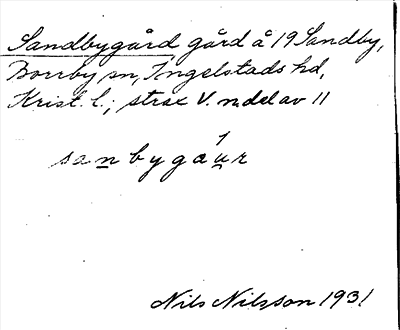 Sandbygård gård å 19 Sandby,
Borrby sn, Ingelstads hd,
Krist. l.; strax V. ndel av 11
sanbygáu̯r
Nils Nilsson 1931